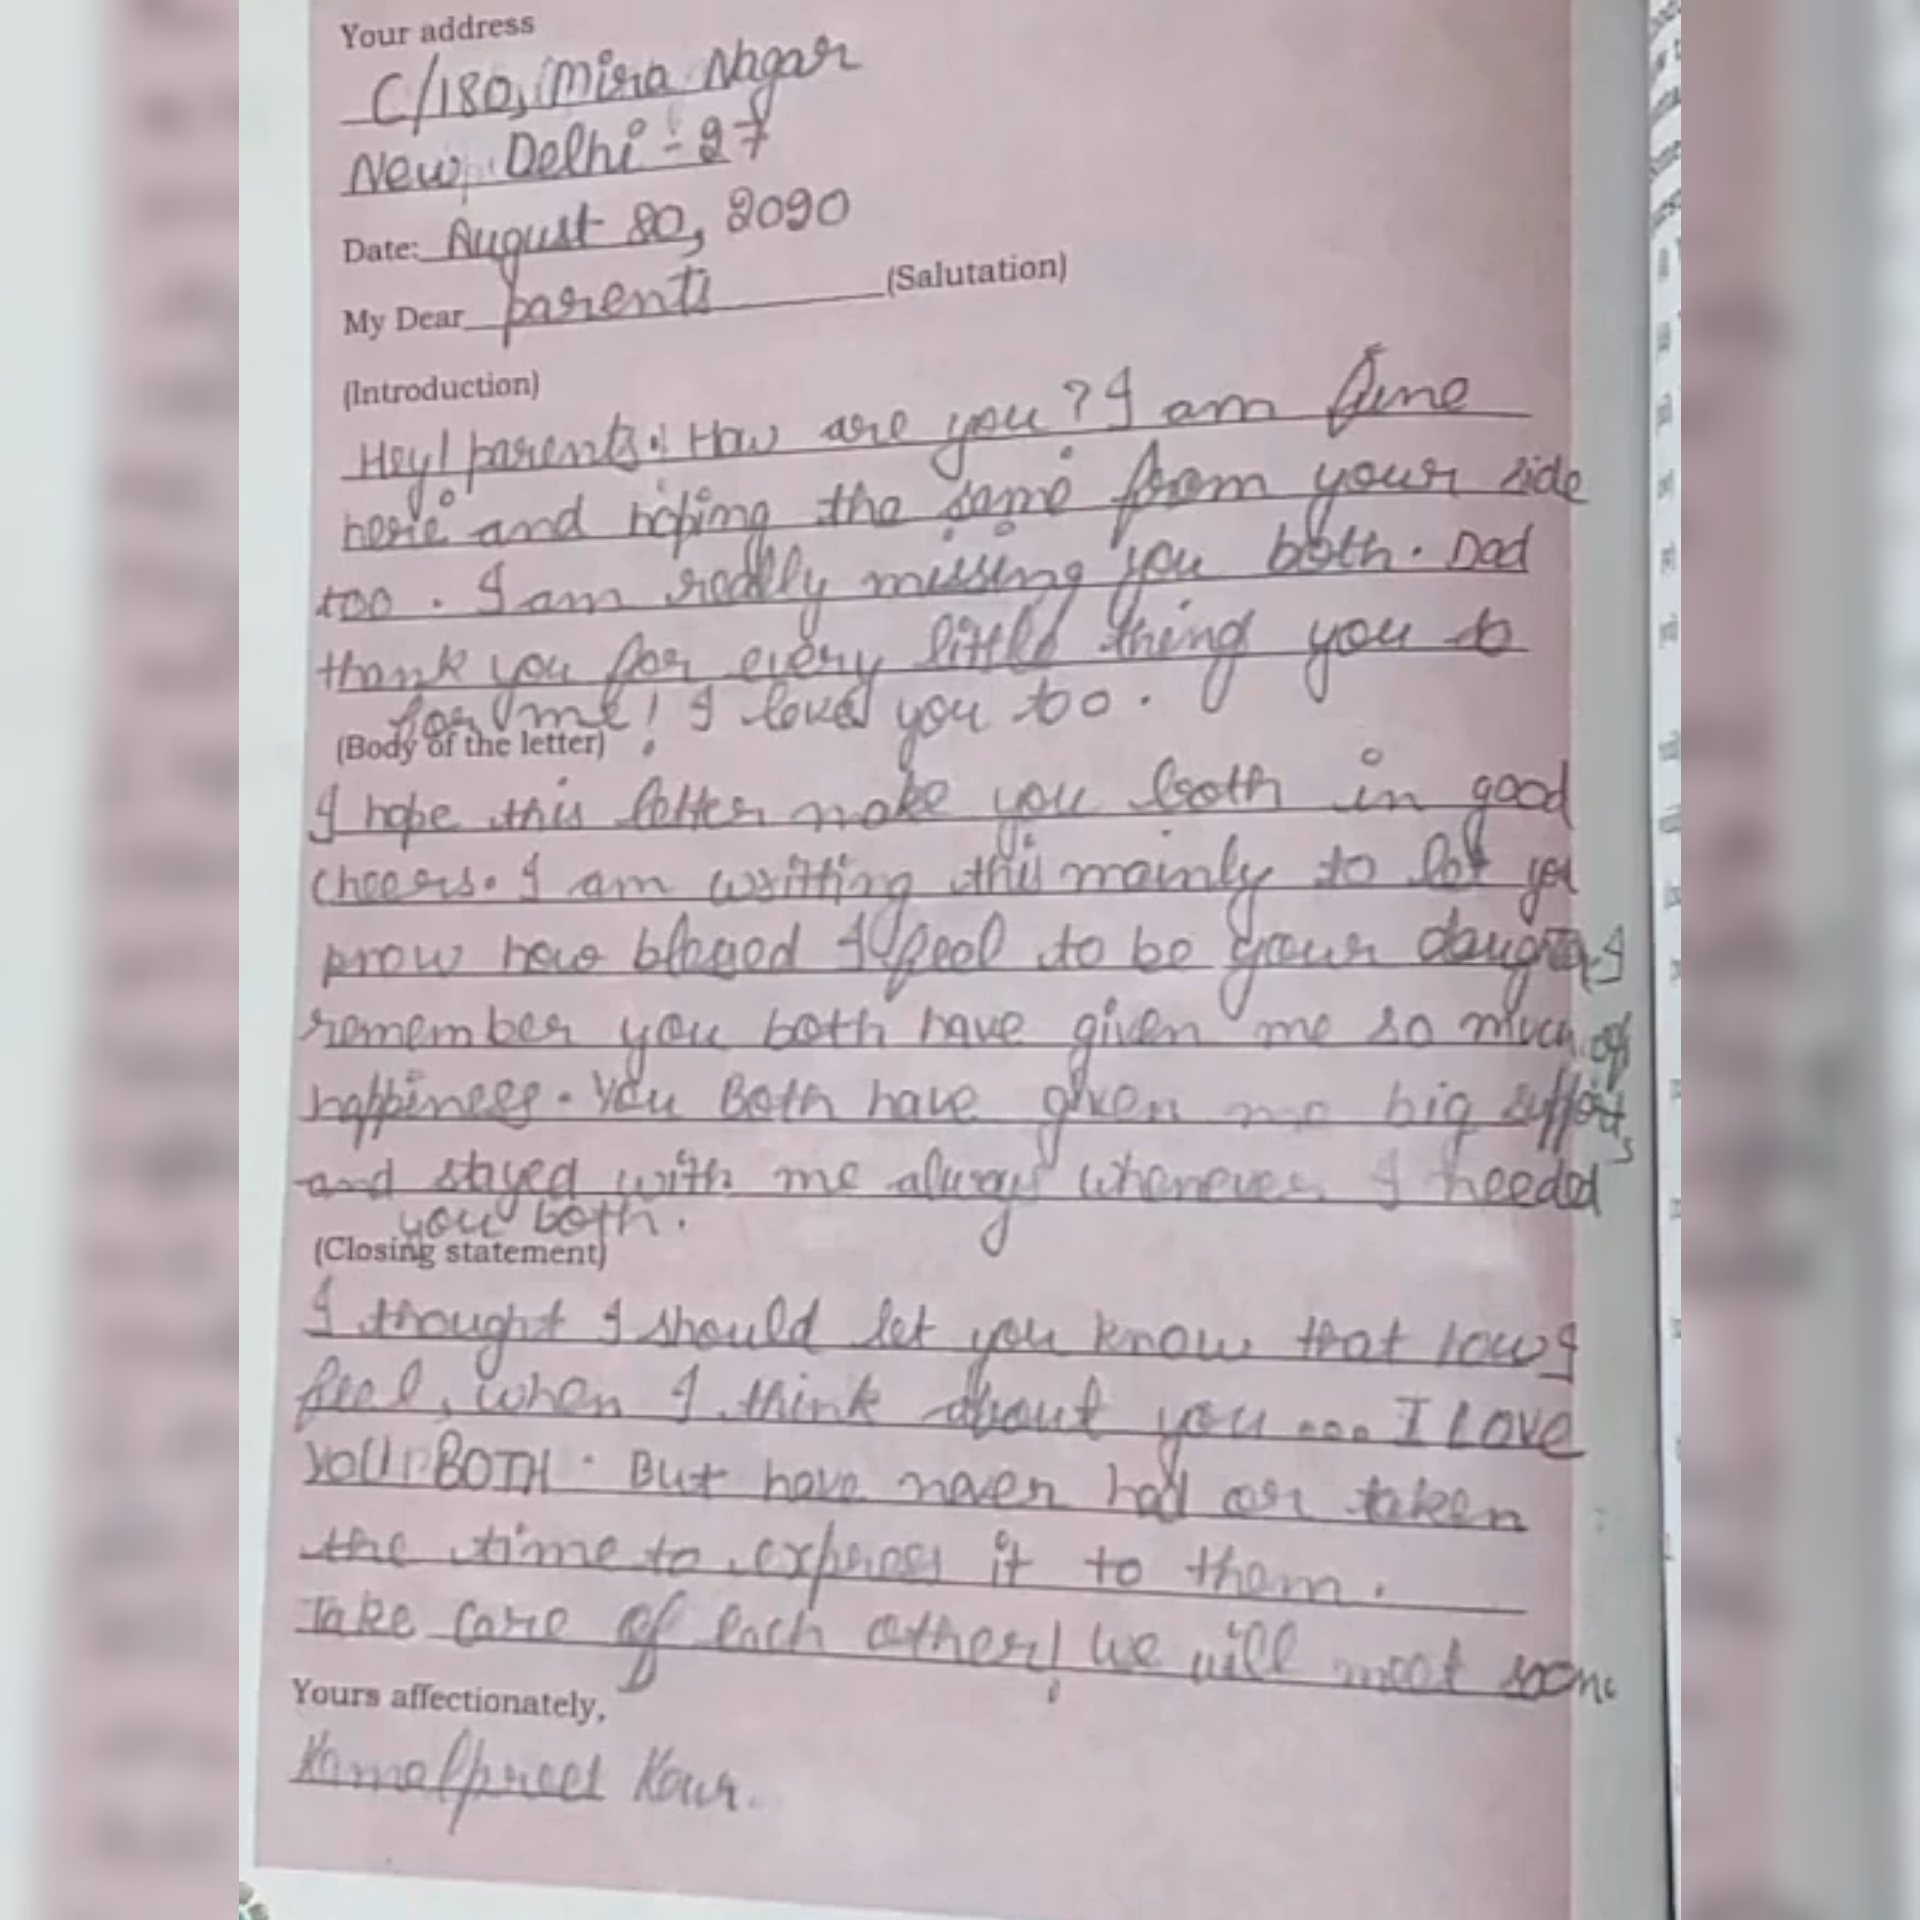 Your address
C/180, Mira Nagar
New Delhi - 27
Date: August 20, 2020
My Dear parents (Salutation)
(Introduction)
Hey! parents! How are you? I am fine
here and hoping the same from your side
too. I am really missing you both. Dad
thank you for every little thing you to
for me! I loved you too.
(Body of the letter)
I hope this letter make you both in good
cheers. I am writting this mainly to let you
know how blessed I feel to be your daughter I
remember you both have given me so much of
happiness. You Both have given me big efforts
and stayed with me always whenever I needed
you both.
(Closing statement)
I thought I should let you know that how I
feel, when I think about you ... I LOVE
YOU BOTH. But have never had or taken
the time to express it to them.
Take care of each other! We will meet soon.
Yours affectionately,
Kamalpreet Kour.